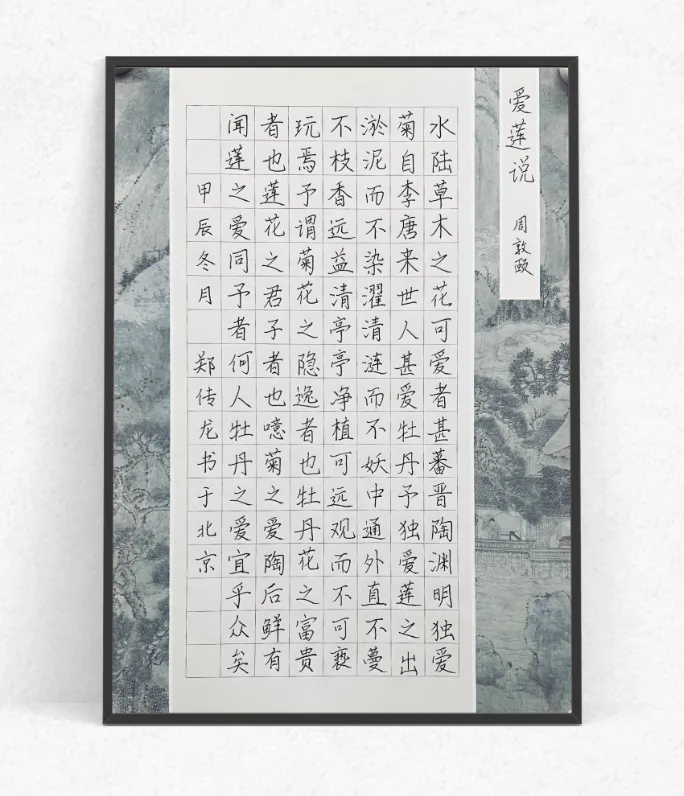 爱莲说 周敦颐
水陆草木之花可爱者甚蕃晋陶渊明独爱
菊自李唐来世人甚爱牡丹予独爱莲之出
淤泥而不染濯清涟而不妖中通外直不蔓
不枝香远益清亭亭净植可远观而不可亵
玩焉予谓菊花之隐逸者也牡丹花之富贵
者也莲花之君子者也噫菊之爱陶后鲜有
闻莲之爱同予者何人牡丹之爱宜乎众矣
甲辰冬月 郑传龙书于北京